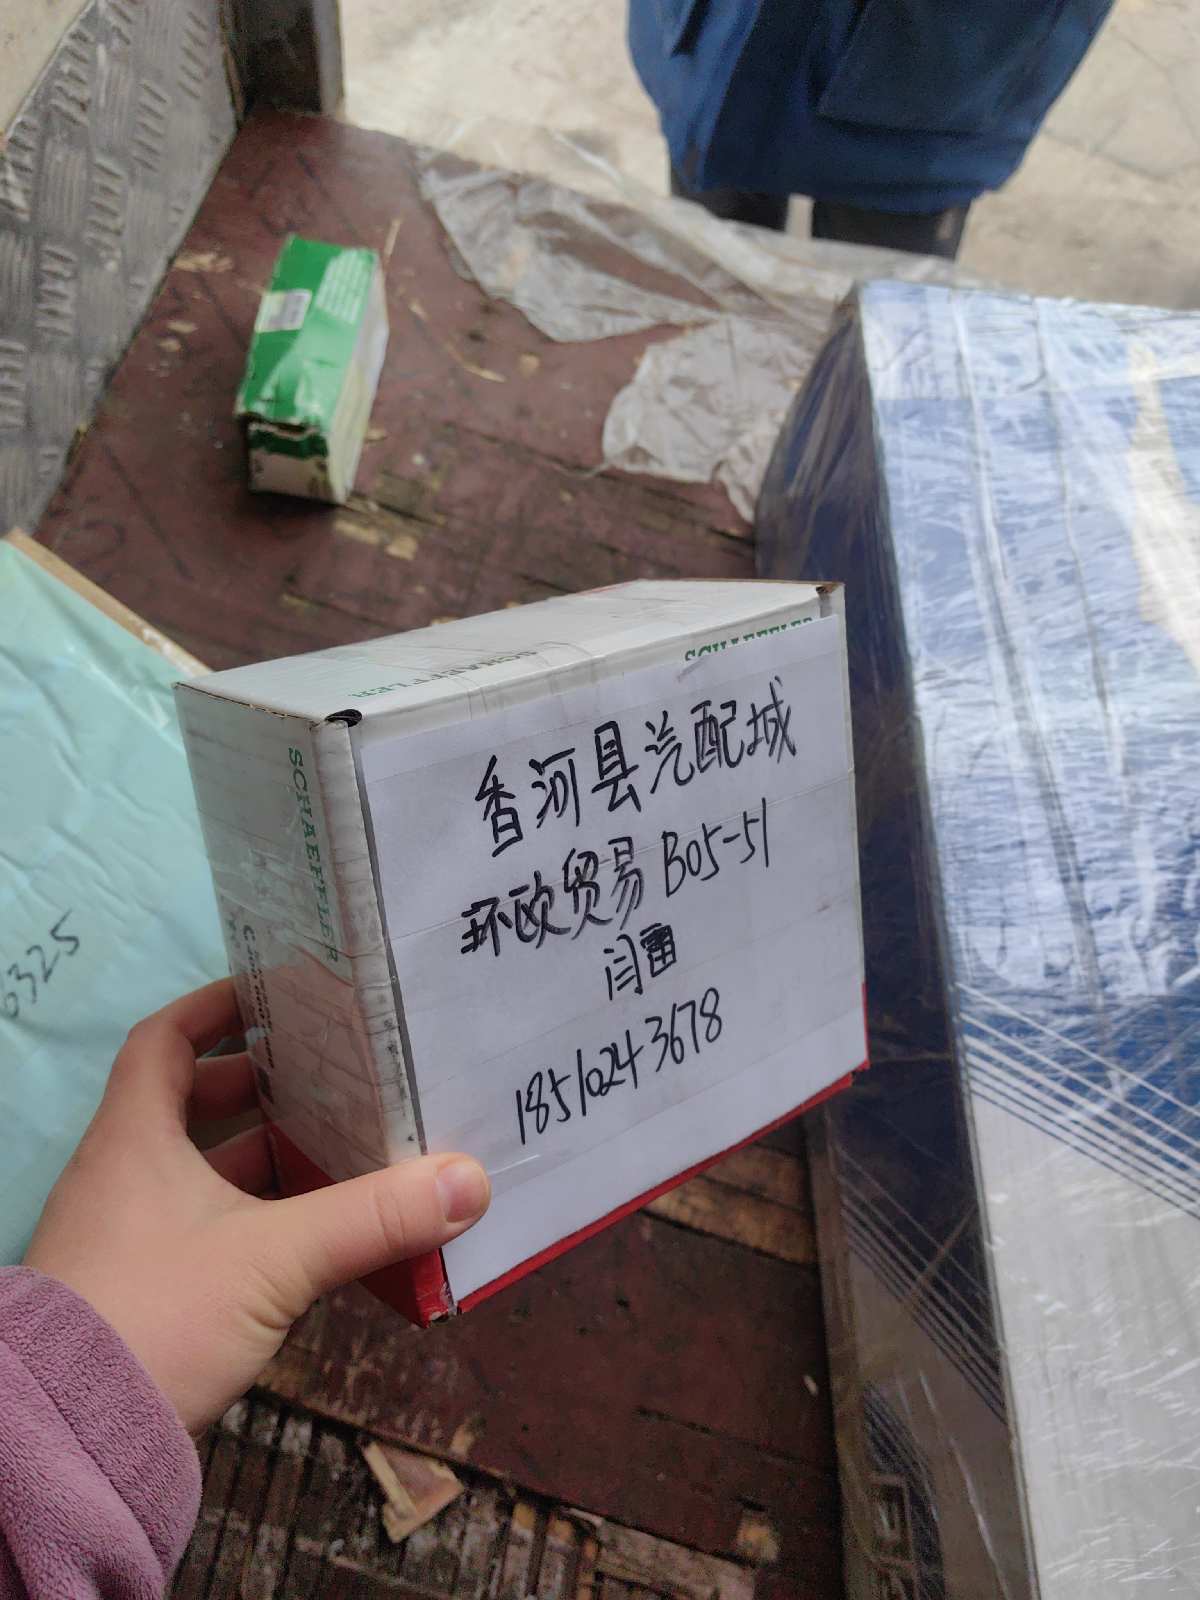 SCHAEFFLER
SCHAEFFLER
SCHAEFFLER
香河县汽配城
环欧贸易 B05-51
闫雷
18510243678
6325